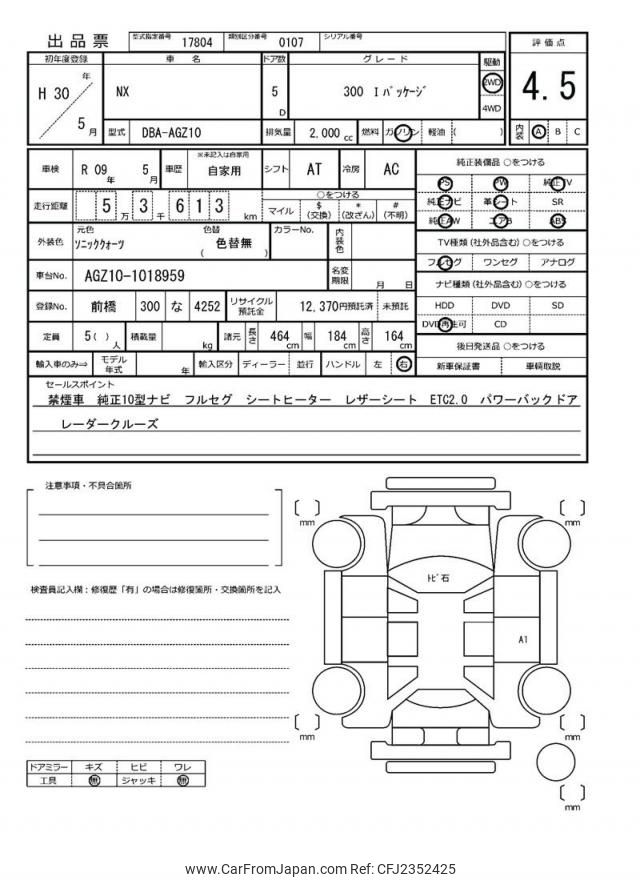 出品票 型式指定番号 17804 類別区分番号 0107 シリアル番号
評価点
4.5
内装 A B C
初年度登録 車名 ドア数 グレード 駆動
H 30 年 5 月 NX 5 D 300 Iパッケージ 2WD 4WD
型式 DBA-AGZ10 排気量 2,000 cc 燃料 ガソリン 軽油 ( )
車検 R 09 年 5 月 車歴 ※未記入は自家用 自家用 シフト AT 冷房 AC
走行距離 5 万 3 千 6 1 3 km
○をつける
マイル $ (交換) * (改ざん) # (不明)
外装色 元色 ソニッククォーツ 色替 色替無 ( ) カラーNo. 内装色
車台No. AGZ10-1018959 名変期限 月 日
登録No. 前橋 300 な 4252 リサイクル預託金 12,370円預託済 未預託
定員 5( ) 人 積載量 kg 諸元 長さ 464 cm 幅 184 cm 高さ 164 cm
輸入車のみ⇒ モデル年式 年 輸入区分 ディーラー 並行 ハンドル 左 右
純正装備品 ○をつける
PS PW 純正TV
純正ナビ 革シート SR
純正AW エアB ABS
TV種類 (社外品含む) ○をつける
フルセグ ワンセグ アナログ
ナビ種類 (社外品含む) ○をつける
HDD DVD SD
DVD再生可 CD
後日発送品 ○をつける
新車保証書 車輌取説
セールスポイント
禁煙車 純正10型ナビ フルセグ シートヒーター レザーシート ETC2.0 パワーバックドア
レーダークルーズ
注意事項・不具合箇所
検査員記入欄：修復歴「有」の場合は修復箇所・交換箇所を記入
ドアミラー キズ ヒビ ワレ
工具 無 ジャッキ 無
mm
mm
トビ石
A1
mm
mm
mm
www.CarFromJapan.com Ref: CFJ2352425